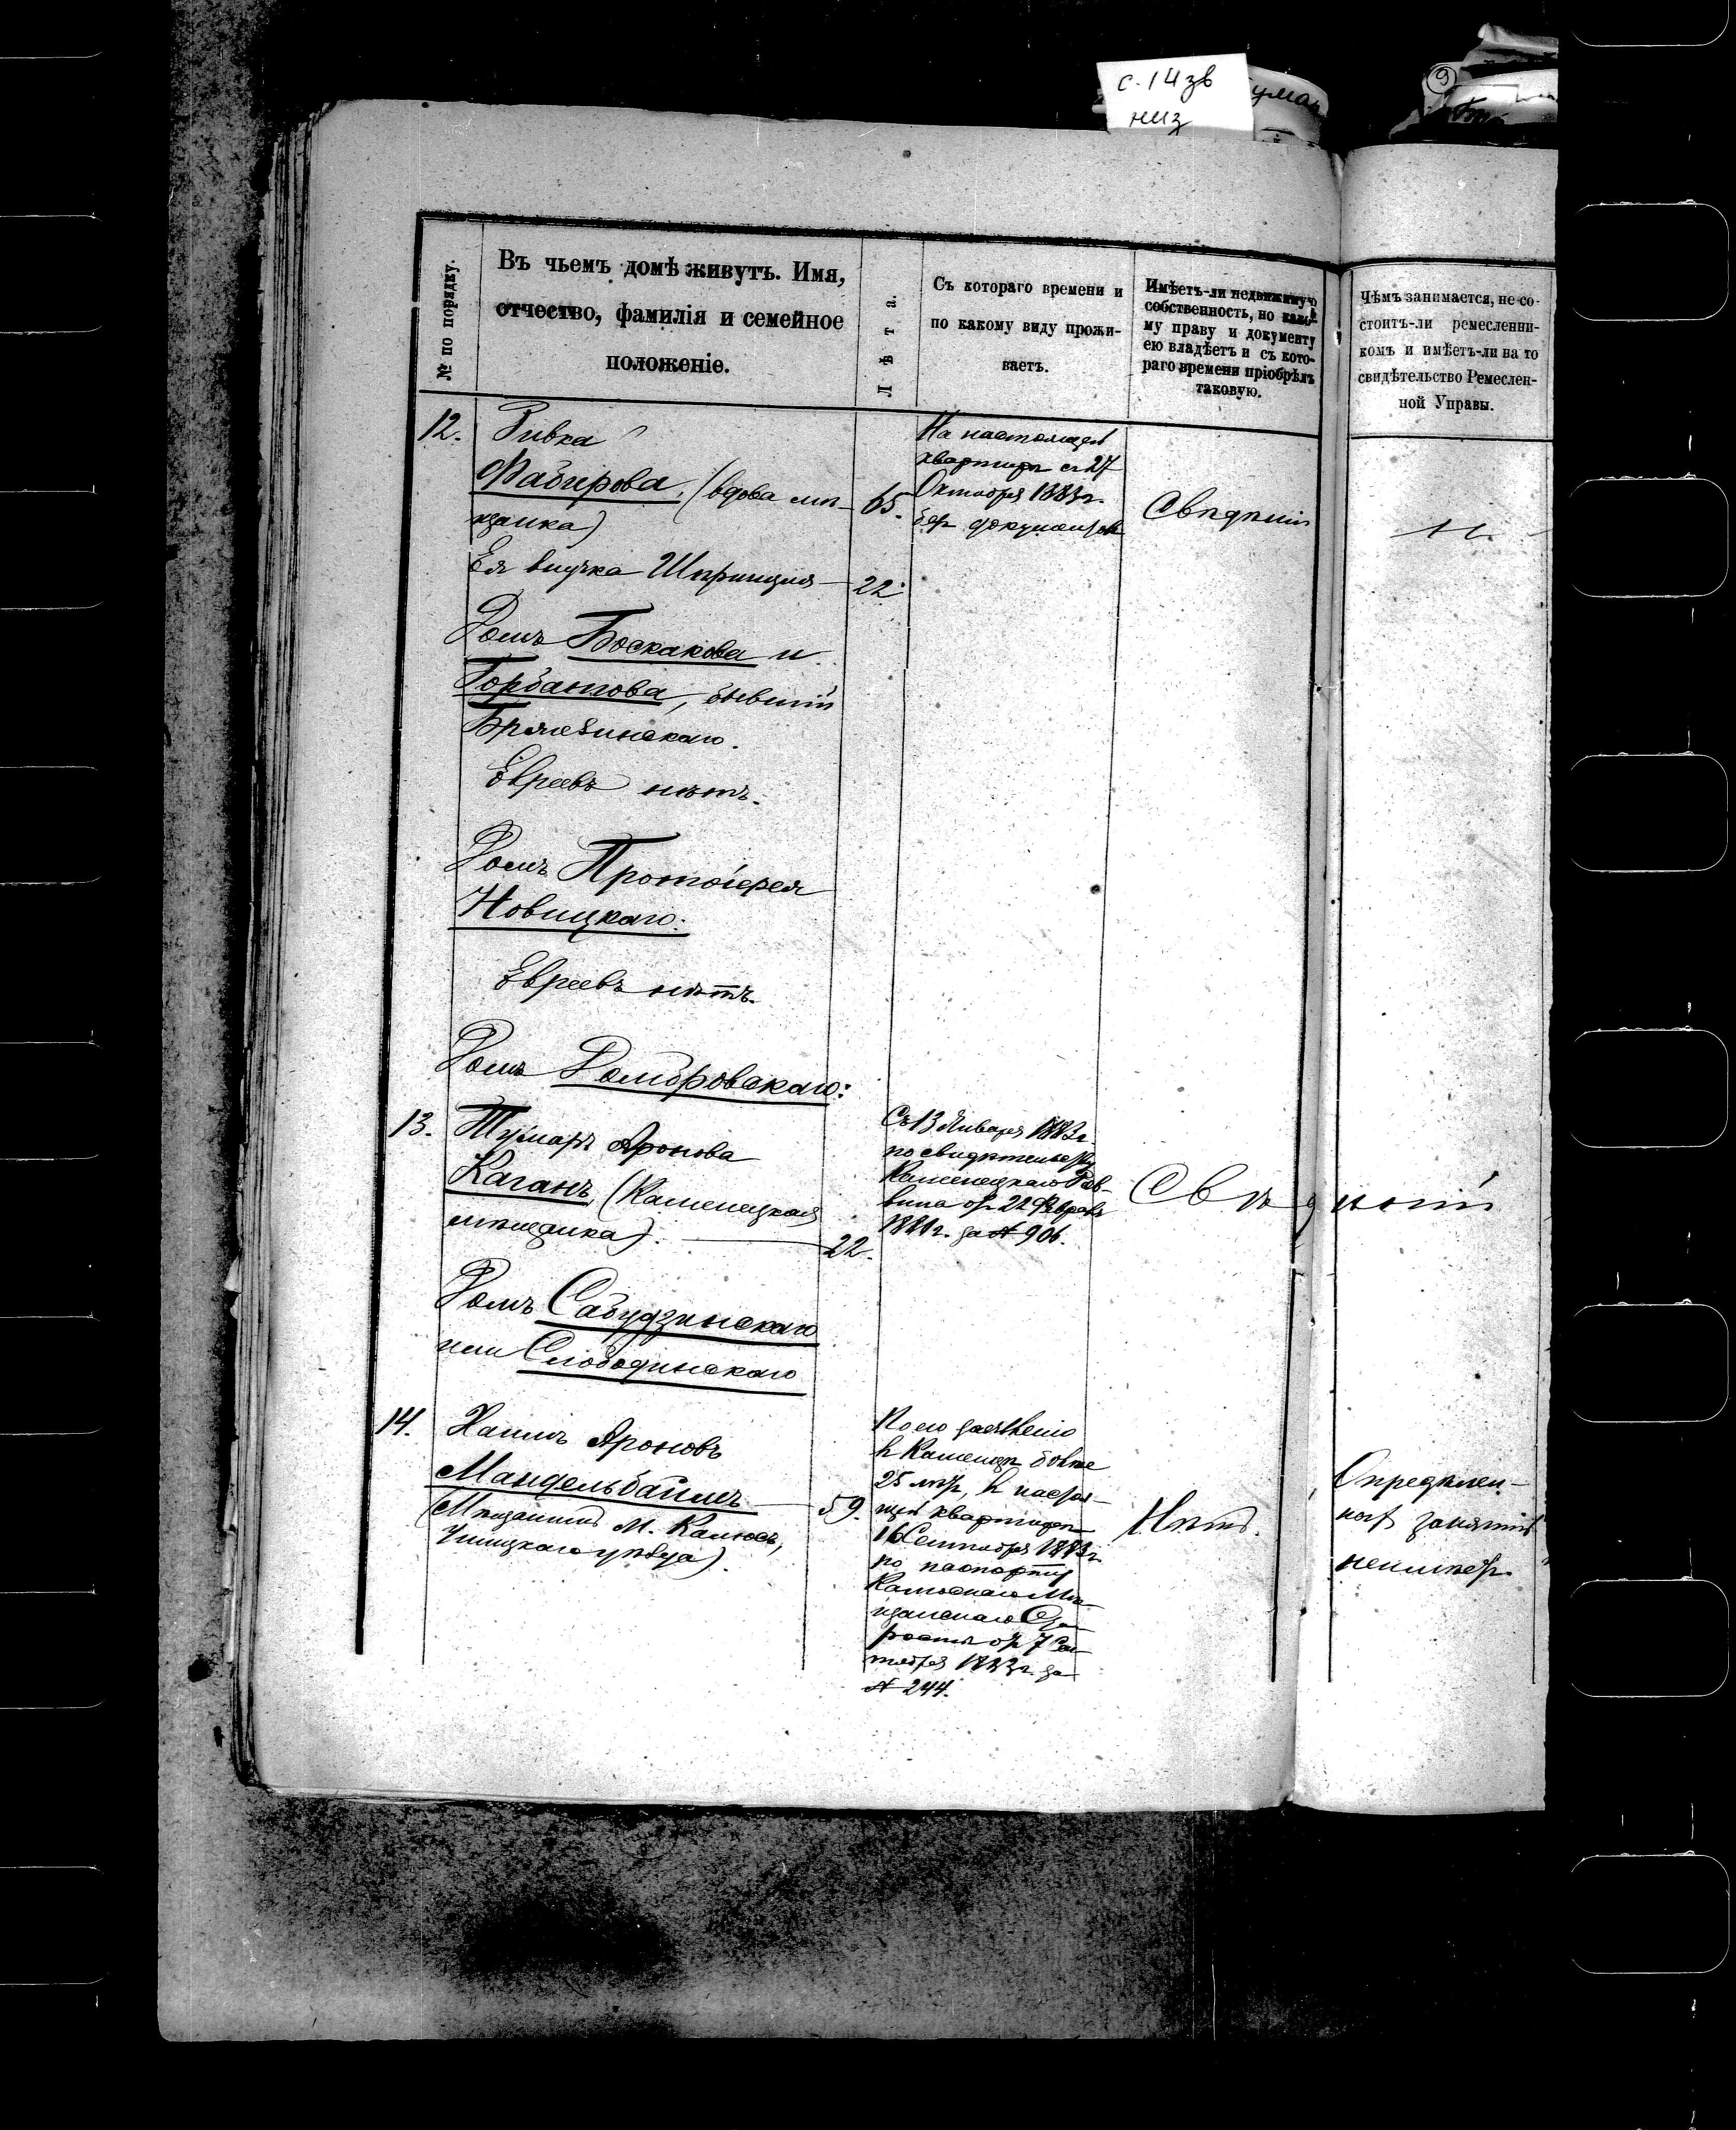 с. 14 зв
низ
9
№ по порядку.
Въ чьемъ домѣ живутъ. Имя,
отчество, фамилія и семейное
положеніе.
Лѣта.
Съ котораго времени и
по какому виду прожи-
ваетъ.
Имѣетъ-ли недвижимую
собственность, по како-
му праву и документу
ею владѣетъ и съ кото-
раго времени пріобрѣлъ
таковую.
Чѣмъ занимается, не со-
стоитъ-ли ремесленни-
комъ и имѣетъ-ли на то
свидѣтельство Ремеслен-
ной Управы.
12.
Ривка
Файбирова, (вдова мѣ-
щанка)
65.
На настоящей
квартирѣ съ 27
Октября 1883 г.
безъ документовъ
Свѣдѣній
н.
Ея внучка Шпринца
22
Домъ Боскакова и
Горбанова, бывшій
Бржезинскаго.
Евреевъ нѣтъ.
Домъ Протоіерея
Новицкаго:
Евреевъ нѣтъ.
Домъ Домбровскаго:
13.
Аронова
Каганъ (Каменецкая
мѣщанка).
22.
Съ 13 Января 1883 г.
по свидѣтельству
Каменецкаго Рав-
вина отъ 22 Февраля
188 г. за № 906.
Свѣдѣній
Домъ Сабудзинскаго
или Слободинскаго
14.
Хаимъ Ароновъ
Мандельбаймъ
(Мѣщанинъ м. Калюсъ,
Ушицкаго уѣзда).
59.
По его заявленію
въ Каменцѣ болѣе
25 лѣтъ, въ настоя-
щей квартирѣ
16 Сентября 1883 г.
по паспорту
Калюскаго Мѣ-
щанскаго Ста-
росты отъ 7 Сен-
тября 1883 г. за
№ 244.
Нѣтъ.
Опредѣлен-
ныхъ занятій
неимѣетъ.